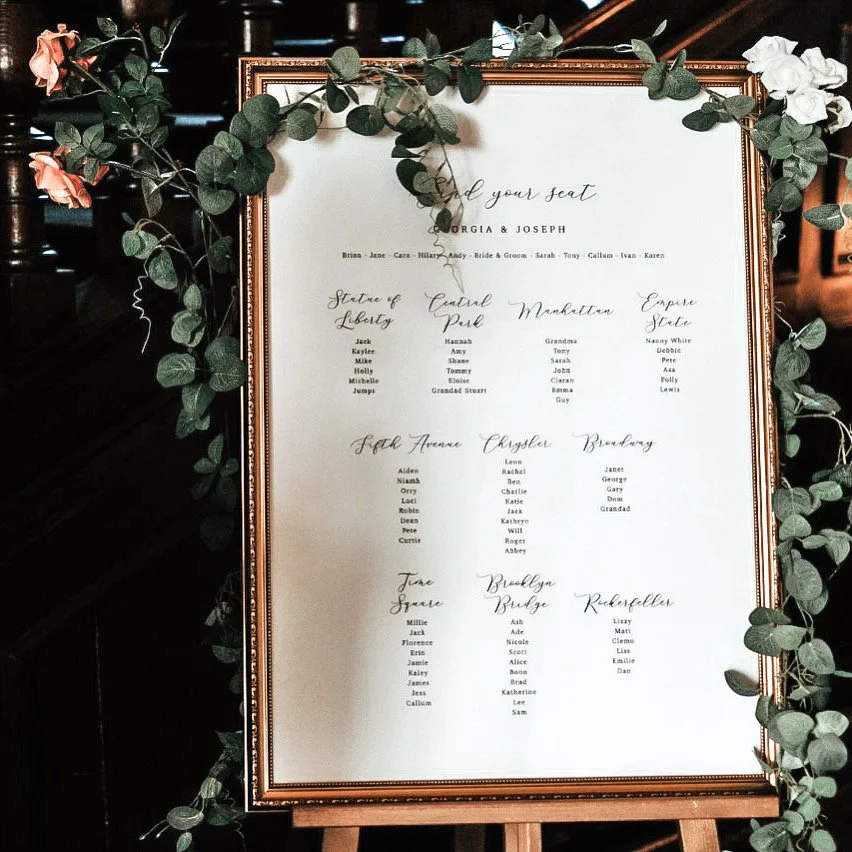 Find your seat
GEORGIA & JOSEPH
Brinn - Jane - Cara - Hilary - Andy - Bride & Groom - Sarah - Tony - Callum - Ivan - Karen
Statue of Liberty
Jack
Kaylee
Mike
Holly
Michelle
Jumps
Central Park
Hannah
Amy
Shane
Tommy
Eloise
Grandad Stuart
Manhattan
Grandma
Tony
Sarah
John
Ciaran
Emma
Guy
Empire State
Nanny White
Debbie
Pete
Asa
Polly
Lewis
Fifth Avenue
Aiden
Niamh
Orry
Luci
Robin
Dean
Pete
Curtis
Chrysler
Leon
Rachel
Ben
Charlie
Katie
Jack
Kathryn
Will
Roger
Abbey
Broadway
Janet
George
Gary
Dom
Grandad
Time Square
Millie
Jack
Florence
Erin
Jamie
Kaley
James
Jess
Callum
Brooklyn Bridge
Ash
Ade
Nicole
Scott
Alice
Boon
Brad
Katherine
Lee
Sam
Rockerfeller
Lizzy
Matt
Clemo
Liss
Emilie
Dan